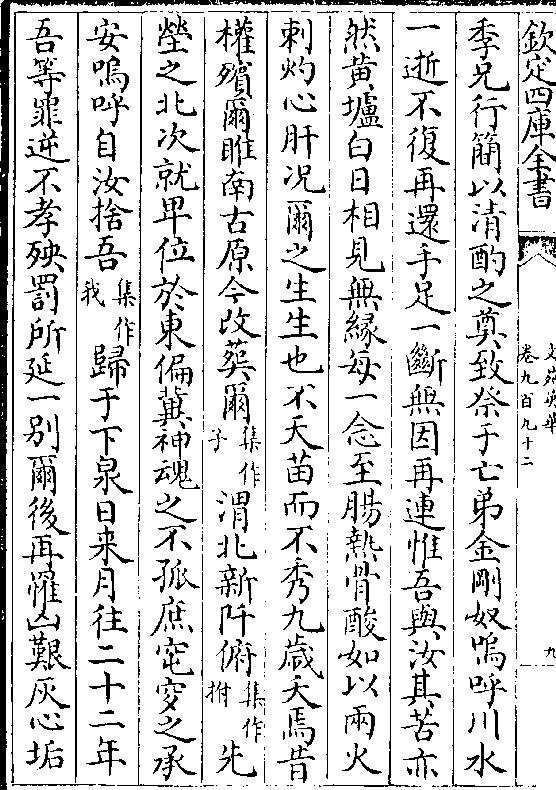 欽定四庫全書
文苑英華
卷九百九十二
九
季兄行簡以清酌之奠致祭于亡弟金剛奴嗚呼川水
一逝不復再還手足一斷無因再連惟吾與汝其苦亦
然黄壚白日相見無縁每一念至腸熱骨酸如以兩火
刺灼心肝况爾之生生也不天苗而不秀九歲夭焉昔
權殯爾睢南古原今改葬爾集作子渭北新阡俯集作拊先
塋之北次就卑位於東偏冀神魂之不孤庶窀穸之承
安嗚呼自汝捨吾集作我歸于下泉日来月往二十二年
吾等罪逆不孝殃罰所延一别爾後再罹凶艱灰心垢